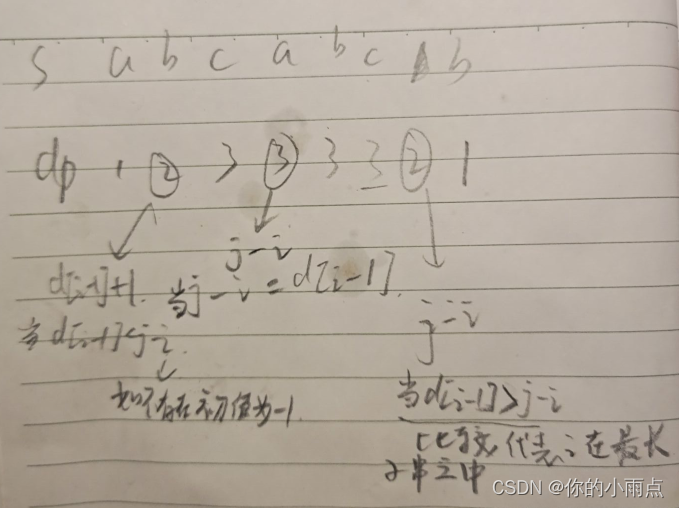 S a b c a b c b b
dp 1 ② 3 ③ 3 3 ② 1
j-i
d[i-1]+1. 当j-i = d[i-1].
j-i
当d[i-1]<j-i.
当d[i-1]>j-i
如不存在 初值为-1.
代表i在最长
子串之中
CSDN @你的小雨点